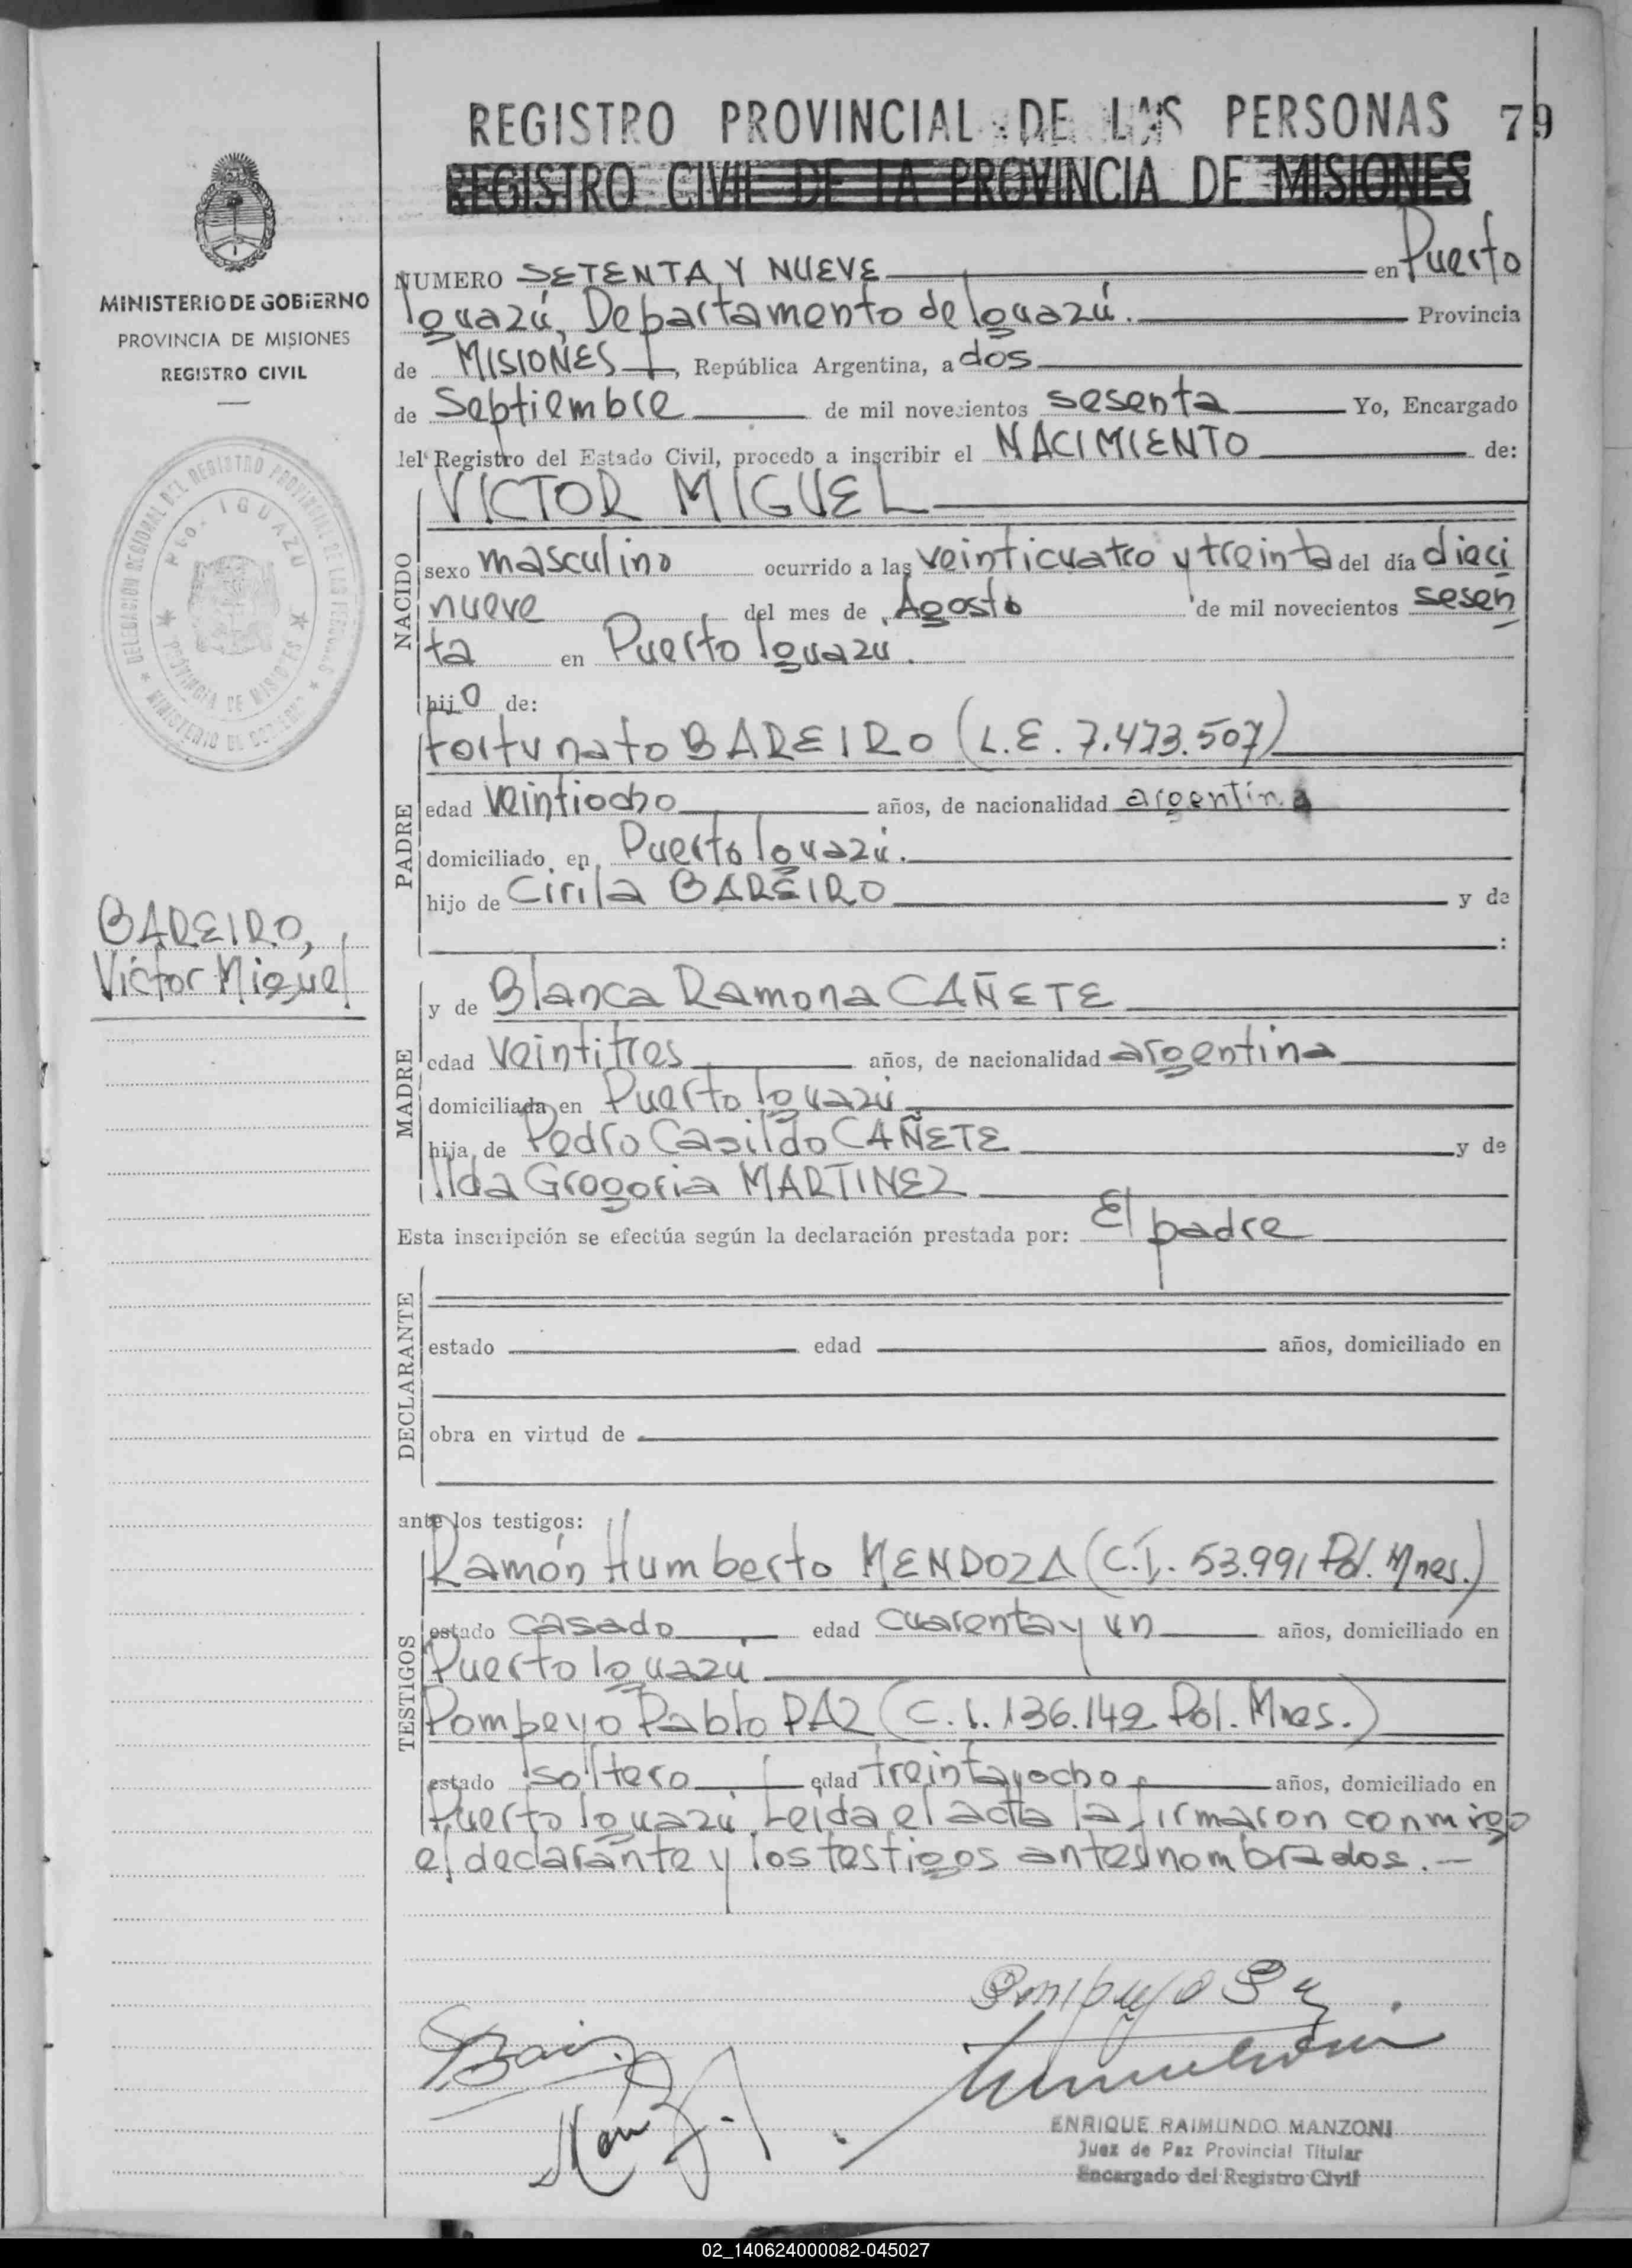 REGISTRO PROVINCIAL DE LAS PERSONAS 79
REGISTRO CIVIL DE LA PROVINCIA DE MISIONES
MINISTERIO DE GOBIERNO
PROVINCIA DE MISIONES
REGISTRO CIVIL
DELEGACION REGIONAL DEL REGISTRO PROVINCIAL DE LAS PERSONAS
MINISTERIO DE GOBIERNO
Pto. IGUAZU
PROVINCIA DE MISIONES
BAREIRO,
Víctor Miguel
NUMERO SETENTA Y NUEVE en Puerto
Iguazú, Departamento de Iguazú. Provincia
de MISIONES, República Argentina, a dos
de Septiembre de mil novecientos sesenta Yo, Encargado
del Registro del Estado Civil, procedo a inscribir el NACIMIENTO de:
NACIDO
VICTOR MIGUEL
sexo masculino ocurrido a las veinticuatro y treinta del día dieci
nueve del mes de Agosto de mil novecientos sesen
ta en Puerto Iguazú.
hijo de:
PADRE
Fortunato BAREIRO (L.E. 7.473.507)
edad veintiocho años, de nacionalidad argentina
domiciliado en Puerto Iguazú.
hijo de Cirila BAREIRO y de
:
MADRE
y de Blanca Ramona CAÑETE
edad veintitres años, de nacionalidad argentina
domiciliada en Puerto Iguazú
hija de Pedro Casildo CAÑETE y de
Ilda Gregoria MARTINEZ
Esta inscripción se efectúa según la declaración prestada por: El padre
DECLARANTE
estado edad años, domiciliado en
obra en virtud de
ante los testigos:
TESTIGOS
Ramón Humberto MENDOZA (C.I. 53.991 Pol. Mnes.)
estado casado edad cuarenta y un años, domiciliado en
Puerto Iguazú
Pompeyo Pablo PAZ (C.I. 136.142 Pol. Mnes.)
estado soltero edad treinta y ocho años, domiciliado en
Puerto Iguazú. Leída el acta la firmaron conmigo
el declarante y los testigos antes nombrados.—
Pompeyo Paz
ENRIQUE RAIMUNDO MANZONI
Juez de Paz Provincial Titular
Encargado del Registro Civil
02_140624000082-045027